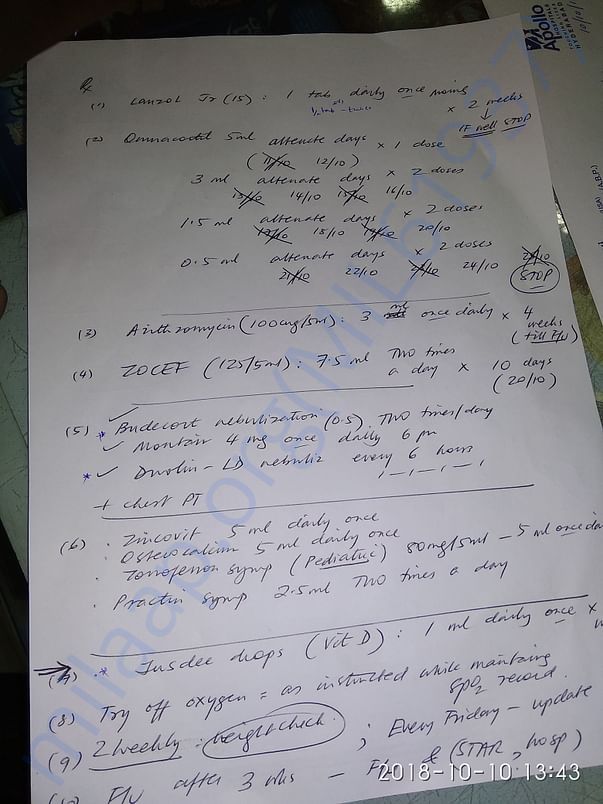 Apollo
HOSPITALS
HYDERABAD
Rx
(1) Lanzol Jr (15) : 1 tab daily once
x 2 weeks
IF well STOP
(2) Omnacortil 5ml alternate days x 1 dose
(11/10 12/10)
3 ml alternate days x 2 doses
13/10 14/10 15/10 16/10
1.5 ml alternate days x 2 doses
17/10 18/10 19/10 20/10
0.5 ml alternate days x 2 doses
21/10 22/10 24/10
STOP
(3) Azithromycin (100mg/5ml) : 3 ml once daily x 4 weeks
(till F/U)
(4) ZOCEF (125/5ml) : 7.5 ml Two times a day x 10 days
(20/10)
(5) Budecort nebulization (0.5) Two times/day
Montair 4 mg once daily 6 pm
Duolin - LD nebuliz every 6 hours
+ chest PT
(6) Zincovit 5 ml daily once
Osteocalcium 5 ml daily once
Tonoferon syrup (Pediatric) 80mg/5ml - 5 ml once
Practin syrup 2.5ml Two times a day
(7) * Jusdee drops (Vit D) : 1 ml daily once x
(8) Try off oxygen = as instructed while maintaing
SpO2 record.
(9) 2 weekly : weight check ; Every Friday - update
F/U after 3 wks - & (STAR, hosp)
milaap.org
2018-10-10 13:43